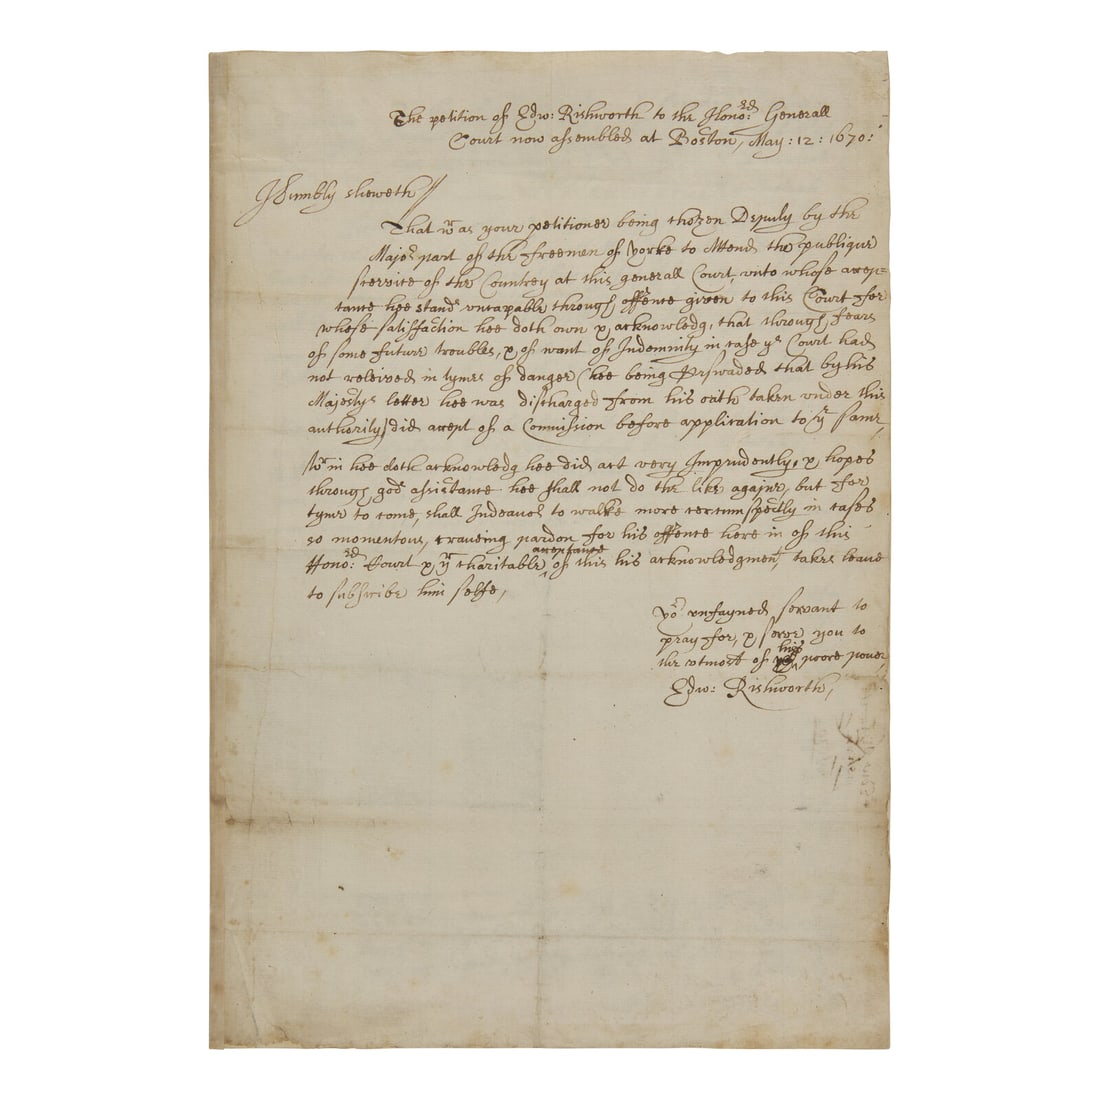 The petition of Edw: Rishworth to the Hono:rd Generall
Court now assembled at Boston, May: 12: 1670:
Humbly sheweth//
That wr as your petitioner being chozen Deputy by the
Majo:r part of the freemen of Yorke to Attend the publique
service of the Countrey at this generall Court, vnto whose accep=
tance hee stands vncapable through offence given to this Court for
whose satisfaction hee doth own & acknowledg, that through fears
of some future troubles, & of want of Indemnity in case ys Court had
not releived in tymes of danger (hee being Perswaded that by his
Majestys letter hee was discharged from his oath taken vnder this
authority) did accept of a Commission before application to yr same,
Wr in hee doth acknowledg hee did act very Imprudently, & hopes
through gods assistance hee shall not do the like againe, but for
tyme to come, shall Indeavor to walke more cercumspectly in cases
so momentous, craueing pardon for his offence here in of this
Hono:rd Court & yr charitable acceptance of this his acknowledgment, takes leave
to subscribe him selfe,
yor vnfayned servant to
pray for, & serve you to
the vtmost of his poore power,
Edw: Rishworth,